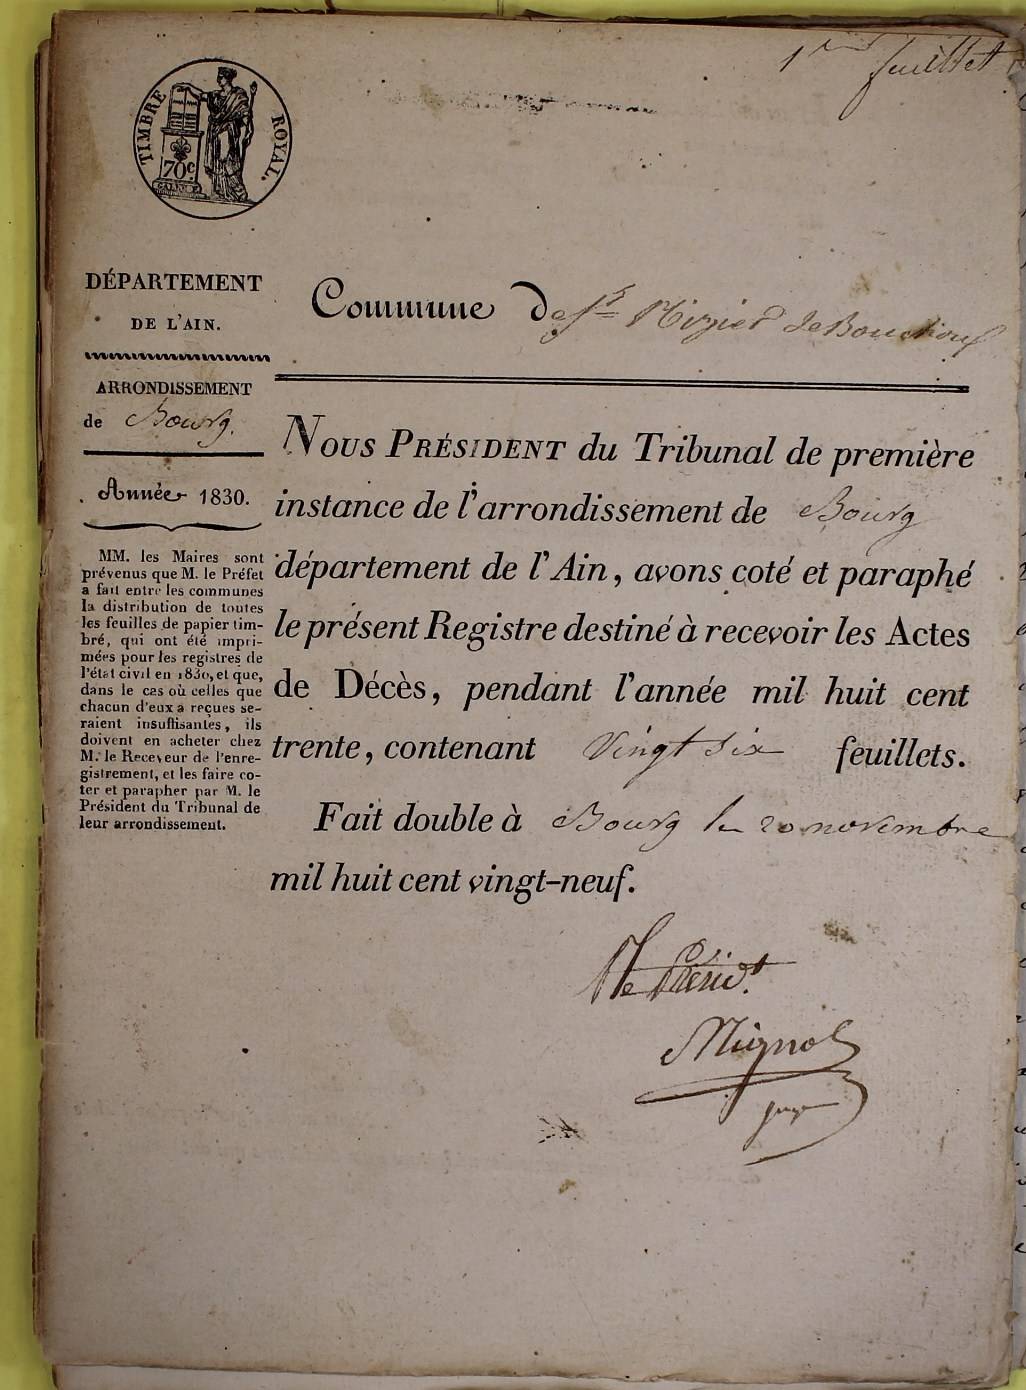 1er feuillet
TIMBRE ROYAL.
70c.
DÉPARTEMENT
DE L'AIN.
ARRONDISSEMENT
de Bourg.
Année 1830.
MM. les Maires sont
prévenus que M. le Préfet
a fait entre les communes
la distribution de toutes
les feuilles de papier tim-
bré, qui ont été impri-
mées pour les registres de
l'état civil en 1830, et que,
dans le cas où celles que
chacun d'eux a reçues se-
raient insuffisantes, ils
doivent en acheter chez
M. le Receveur de l'enre-
gistrement, et les faire co-
ter et parapher par M. le
Président du Tribunal de
leur arrondissement.
Commune De St Nizier le Bouchoux
NOUS PRÉSIDENT du Tribunal de première
instance de l'arrondissement de Bourg
département de l'Ain, avons coté et paraphé
le présent Registre destiné à recevoir les Actes
de Décès, pendant l'année mil huit cent
trente, contenant vingt six feuillets.
Fait double à Bourg le 20 novembre
mil huit cent vingt-neuf.
Le Présidt.
Mignot
juge